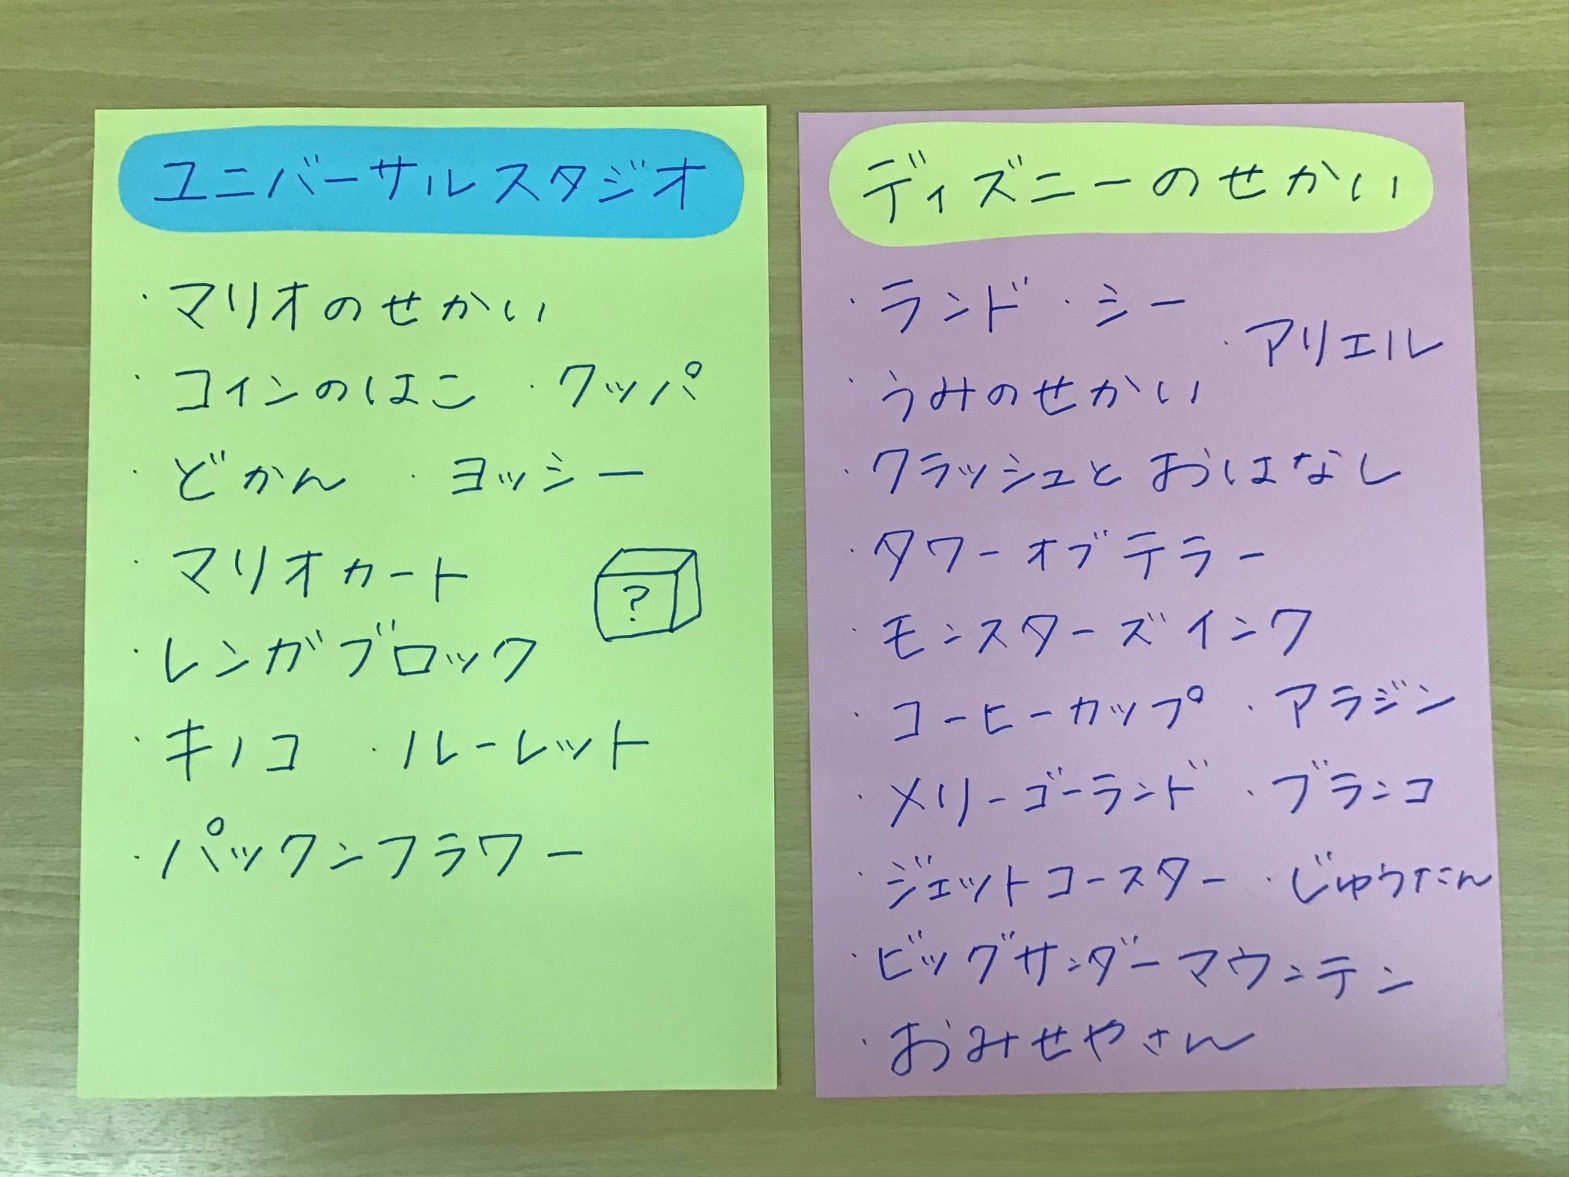 ユニバーサルスタジオ
・マリオのせかい
・コインのはこ ・クッパ
・どかん ・ヨッシー
・マリオカート
?
・レンガブロック
・キノコ ・ルーレット
・パックンフラワー
ディズニーのせかい
・ランド ・シー
・アリエル
・うみのせかい
・クラッシュとおはなし
・タワーオブテラー
・モンスターズインク
・コーヒーカップ ・アラジン
・メリーゴーランド ・ブランコ
・ジェットコースター ・じゅうたん
・ビッグサンダーマウンテン
・おみせやさん